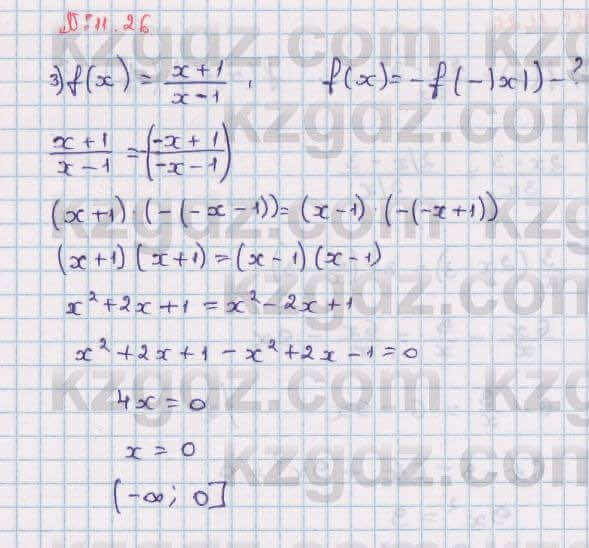 № 11.26
3) f(x) = \frac{x+1}{x-1}, f(x) = -f(-|x|) - ?
\frac{x+1}{x-1} = -\left(\frac{-x+1}{-x-1}\right)
(x+1)·(-(-x-1)) = (x-1)·(-(-x+1))
(x+1)(x+1) = (x-1)(x-1)
x² + 2x + 1 = x² - 2x + 1
x² + 2x + 1 - x² + 2x - 1 = 0
4x = 0
x = 0
[-∞; 0]
kzgdz.com